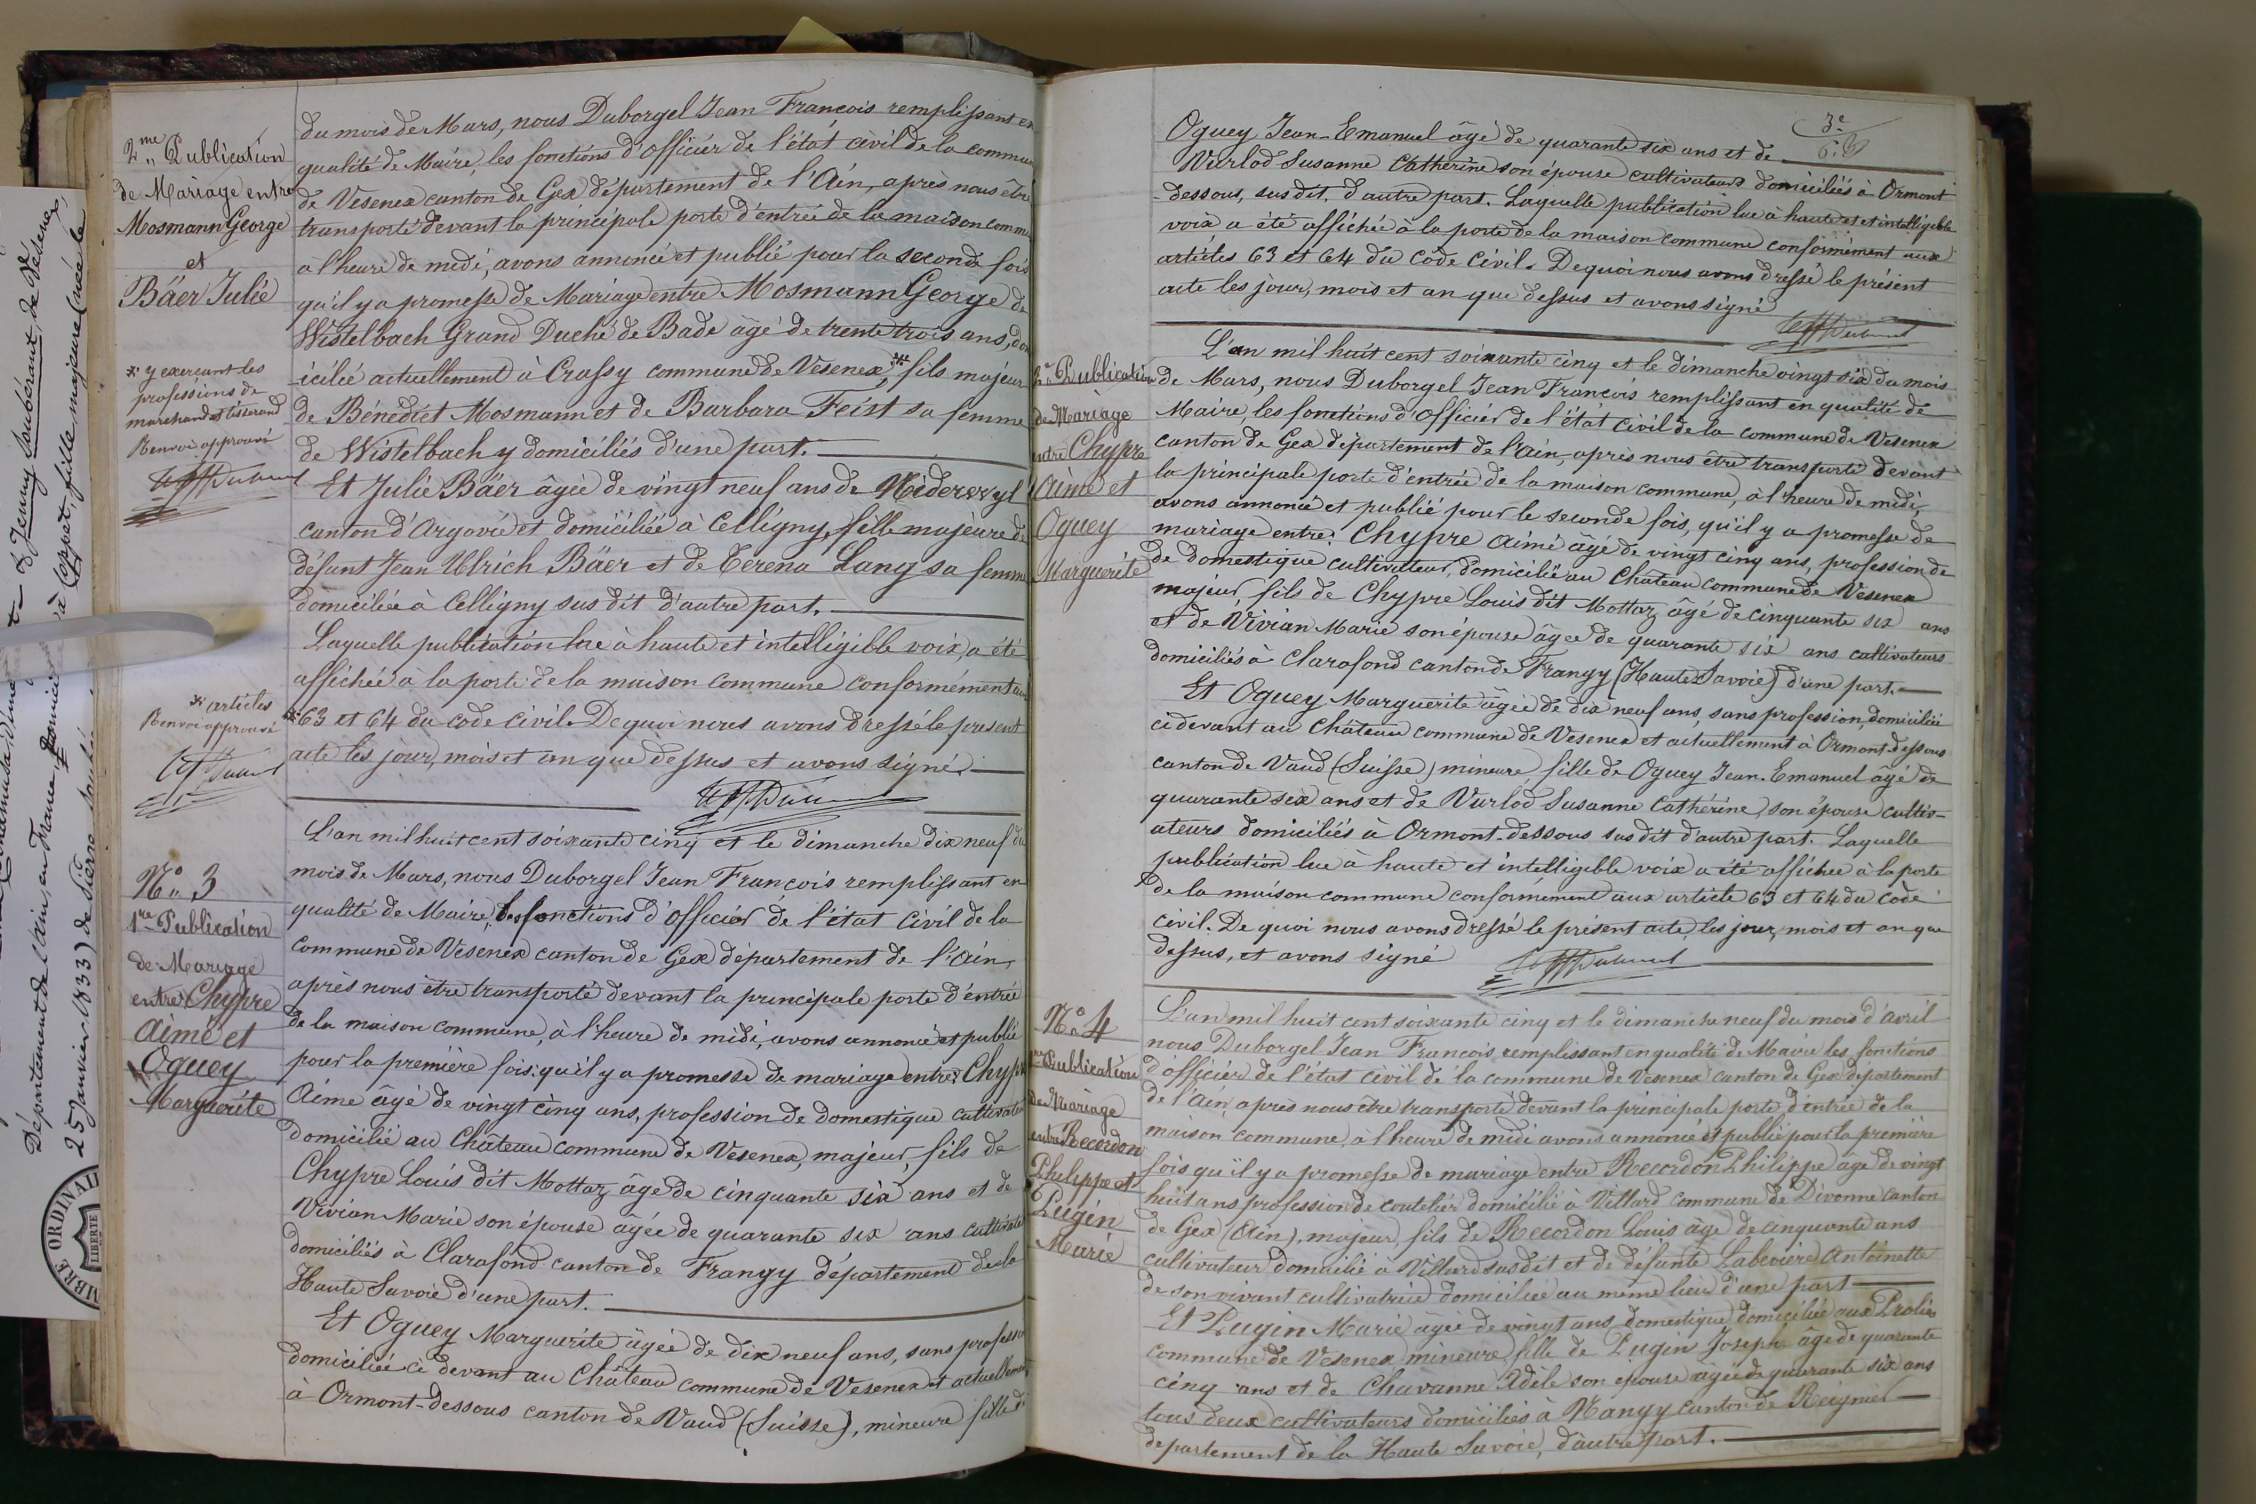 2me Publication
de Mariage entre
Mosmann George
et
Bäer Julie
* y exercant les
professions de
marchand et tisserand
Renvoi approuvé
* articles
Renvoi approuvé
No 3
1re Publication
de Mariage
entre Chypre
Aimé et
Oguey
Marguerite
du mois de Mars, nous Duborgel Jean François remplissant en
qualité de Maire, les fonctions d'officier de l'état civil de la commune
de Vesenex canton de Gex département de l'Ain, après nous être
transporté devant la principale porte d'entrée de la maison commune
à l'heure de midi, avons annoncé et publié pour la seconde fois
qu'il y a promesse de Mariage entre Mosmann George de
Wistelbach Grand Duché de Bade âgé de trente trois ans, dom
-icilié actuellement à Crassy commune de Vesenex,* fils majeur
de Bénédict Mosmann et de Barbara Feist sa femme
de Wistelbach y domiciliés d'une part.
Et Julie Bäer âgée de vingt neuf ans de Niderwyl
canton d'Argovie et domiciliée à Celligny, fille majeure de
défunt Jean Ulrich Bäer et de Terena Lang sa femme
domiciliée à Celligny sus dit d'autre part.
Laquelle publication lue à haute et intelligible voix, a été
affichée à la porte de la maison commune conformément aux
* 63 et 64 du code civil. De quoi nous avons dressé le présent
acte les jour, mois et an que dessus et avons signé.
L'an mil huit cent soixante cinq et le dimanche dix neuf du
mois de Mars, nous Duborgel Jean François remplissant en
qualité de Maire, les fonctions d'officier de l'état civil de la
commune de Vesenex canton de Gex département de l'Ain,
après nous être transporté devant la principale porte d'entrée
de la maison commune, à l'heure de midi, avons annoncé et publié
pour la première fois: qu'il y a promesse de mariage entre: Chypre
Aimé âgé de vingt cinq ans, profession de domestique cultivateur
domicilié au Château commune de Vesenex, majeur, fils de
Chypre Louis dit Mottaz âgé de cinquante six ans et de
Vivian Marie son épouse âgée de quarante six ans cultivateurs
domiciliés à Clarafond canton de Frangy département de la
Haute Savoie d'une part.
Et Oguey Marguerite âgée de dix neuf ans, sans profession
domiciliée ci devant au Château commune de Vesenex et actuellement
à Ormont-dessous canton de Vaud (Suisse), mineure fille de
3e
Oguey Jean-Emanuel âgé de quarante six ans et de
Vurlod Susanne Catherine son épouse cultivateurs domiciliés à Ormont
-dessous, sus dit, d'autre part. Laquelle publication lue à haute et intelligible
voix a été affichée à la porte de la maison commune conformément aux
articles 63 et 64 du code civil. De quoi nous avons dressé le présent
acte les jour, mois et an que dessus et avons signé
2e Publication
de Mariage
entre Chypre
Aimé et
Oguey
Marguerite
L'an mil huit cent soixante cinq et le dimanche vingt six du mois
de Mars, nous Duborgel Jean François remplissant en qualité de
Maire, les fonctions d'officier de l'état civil de la commune de Vesenex
canton de Gex département de l'Ain, après nous être transporté devant
la principale porte d'entrée de la maison commune, à l'heure de midi,
avons annoncé et publié pour le seconde fois, qu'il y a promesse de
mariage entre: Chypre Aimé âgé de vingt cinq ans, profession de
de domestique cultivateur, domicilié au Château commune de Vesenex
majeur, fils de Chypre Louis dit Mottaz âgé de cinquante six ans
et de Vivian Marie son épouse âgée de quarante six ans cultivateurs
domiciliés à Clarafond canton de Frangy (Haute Savoie) d'une part.
Et Oguey Marguerite âgée de dix neuf ans, sans profession, domiciliée
ci devant au Château commune de Vesenex et actuellement à Ormont-dessous
canton de Vaud (Suisse) mineure, fille de Oguey Jean-Emanuel âgé de
quarante six ans et de Vurlod Susanne Cathérine, son épouse cultiv-
ateurs domiciliés à Ormont-dessous sus dit d'autre part. Laquelle
publication lue à haute et intelligible voix a été affichée à la porte
de la maison commune conformément aux article 63 et 64 du code
civil. De quoi nous avons dressé le présent acte, les jour, mois et an que
dessus, et avons signé
No 4
1re Publication
de Mariage
entre Recordon
Philippe et
Pugin
Marie
L'an mil huit cent soixante cinq et le dimanche neuf du mois d'avril
nous Duborgel Jean François, remplissant en qualité de Maire les fonctions
d'officier de l'état civil de la commune de Vesenex canton de Gex département
de l'Ain, après nous être transporté devant la principale porte d'entrée de la
maison commune, à l'heure de midi avons annoncé et publié pour la première
fois qu'il y a promesse de mariage entre Recordon Philippe âgé de vingt
huit ans profession de coutelier domicilié à Villard commune de Divonne canton
de Gex (Ain), majeur, fils de Recordon Louis âgé de cinquante ans
cultivateur domicilié à Villard sus dit et de défunte Labevière Antoinette
de son vivant cultivatrice domiciliée au même lieu d'une part
Et Pugin Marie âgée de vingt ans domestique domiciliée aux Prolies
commune de Vesenex mineure, fille de Pugin Joseph âgé de quarante
cinq ans et de Chavanne Adèle son épouse âgée de quarante six ans
tous deux cultivateurs domiciliés à Nangy canton de Reignier
département de la Haute Savoie, d'autre part.
Jenny Soubérant, de Vésenex,
Département de l'Ain, en France
à Coppet, fille majeure (née le
25 Janvier 1833) de Pierre
TIMBRE ORDINAIRE
LIBERTE